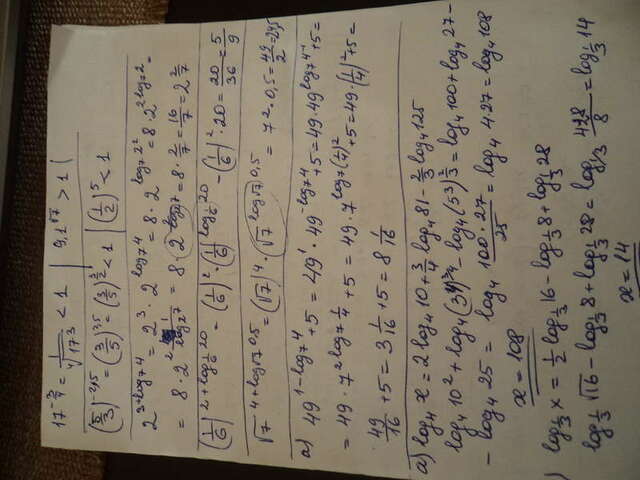 17^{-3/4} = 1/⁴√17³ < 1 | 9,1^{√7} > 1 (
(5/3)^{-2,5} = (3/5)^{2,5} = (3/5)^{2 1/2} < 1 | (1/2)^5 < 1
2^{3+log₇4} = 2³ · 2^{log₇4} = 8 · 2^{log₇2²} = 8 · 2^{2log₇2} =
= 8 · 2^{2 1/log₂7} = 8 · 2^{log₂7} = 8 · 2/7 = 16/7 = 2 2/7
(1/6)^{2+log_{1/6}20} = (1/6)² · (1/6)^{log_{1/6}20} = (1/6)² · 20 = 20/36 = 5/9
√7^{4+log_{√7}0,5} = (√7)⁴ · √7^{log_{√7}0,5} = 7² · 0,5 = 49/2 = 24,5
а) 49^{1-log₇4} + 5 = 49¹ · 49^{-log₇4} + 5 = 49 · 49^{log₇4⁻¹} + 5 =
= 49 · 7^{2log₇1/4} + 5 = 49 · 7^{log₇(1/4)²} + 5 = 49 · (1/4)² + 5 =
49/16 + 5 = 3 1/16 + 5 = 8 1/16
а) log₄x = 2log₄10 + 3/4 log₄81 - 2/3 log₄125
log₄10² + log₄(3⁴)^{3/4} - log₄(5³)^{2/3} = log₄100 + log₄27 -
- log₄25 = log₄ 100·27/25 = log₄ 4·27 = log₄108
x = 108
) log_{1/3}x = 1/2 log_{1/3}16 - log_{1/3}8 + log_{1/3}28
log_{1/3}√16 - log_{1/3}8 + log_{1/3}28 = log_{1/3} 4·28/8 = log_{1/3}14
x = 14